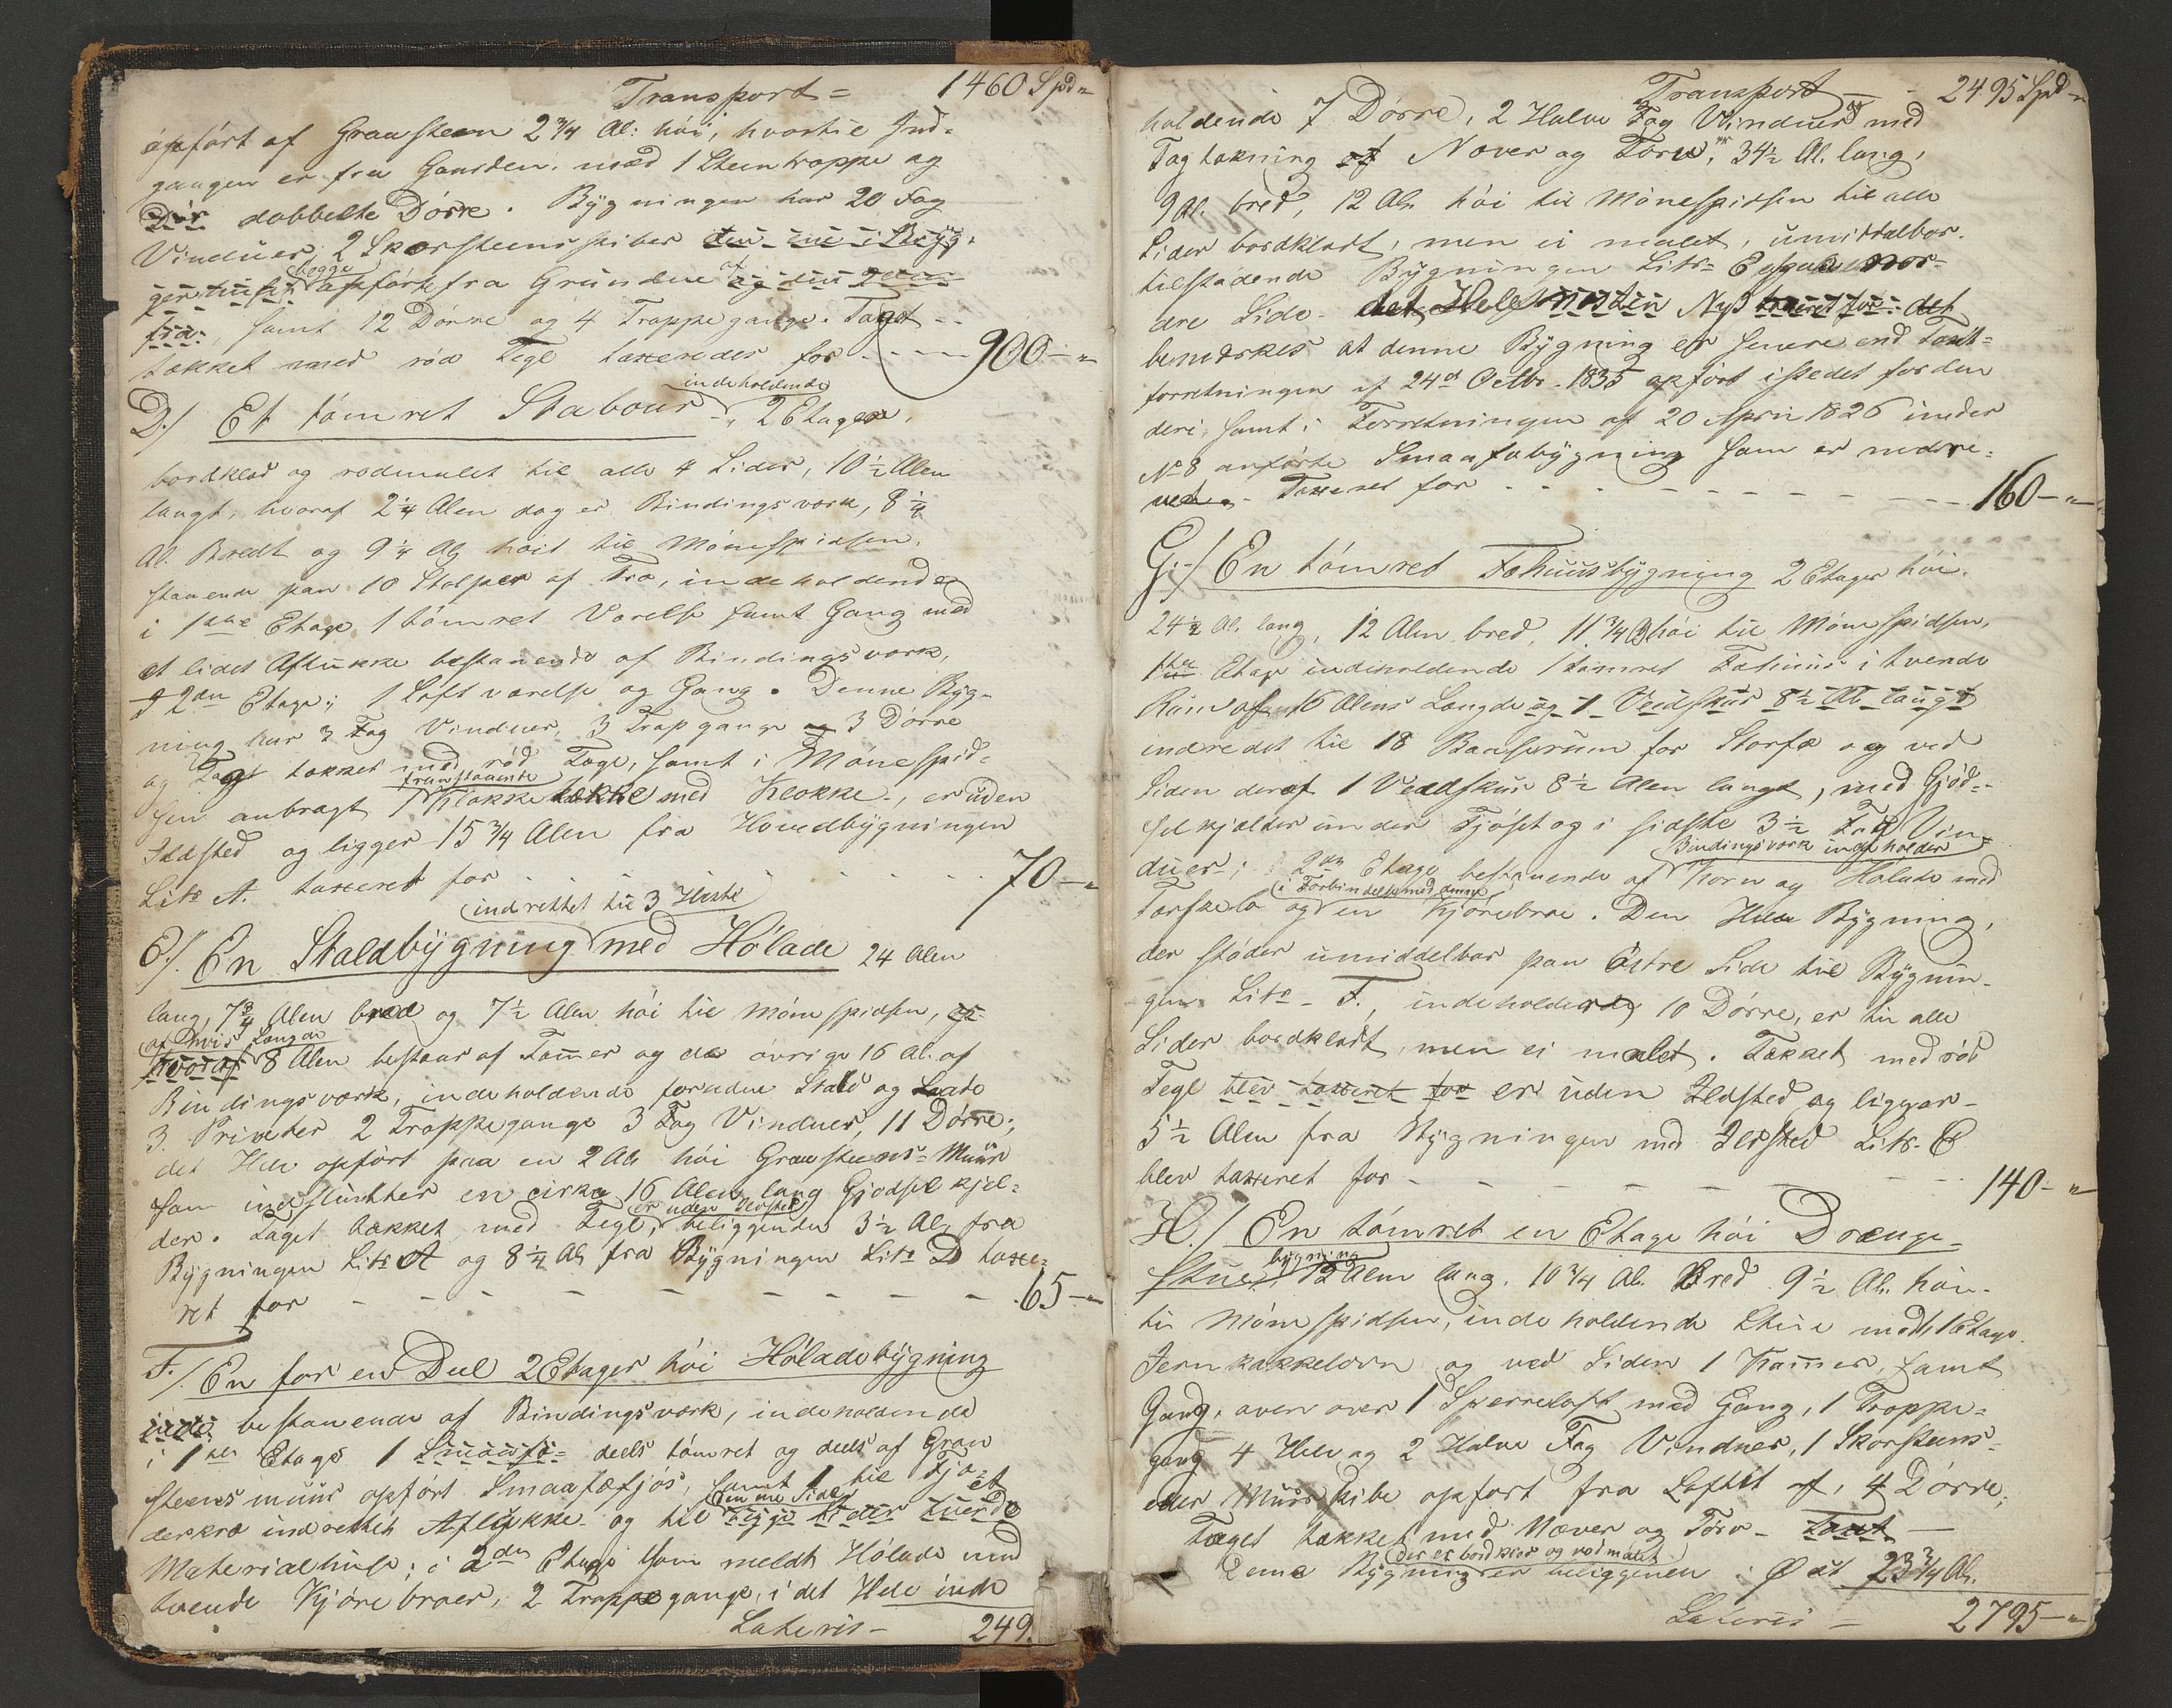 Transport = 1460 Spd "
opført af Graasteen 2 3/4 Al: høi, hvortil Ind-
gangen er fra Gaarden, med 1 Steentrappe og
dobbelte Dørre. Bygningen har 20 Fag
Vinduer, 2 Skorsteenspiber den ene i Byg-
begge
opførte fra Grunden af
fra, samt 12 Dørre og 4 Trappegange. Taget
tækket med rød Tegl taxeredes for - - - 900 - "
indeholdende
D./ Et tømret Stabour 2 Etager,
bordklæd og rødmalet til alle 4 Sider, 10 1/2 Alen
langt, hvoraf 2 1/4 Alen dog er Bindingsværk, 8 1/4
Al. Bredt og 9 1/4 Al. høit til Mønespidsen,
staaende paa 10 Stolper af Træ, indeholdende
i 1ste Etage 1 tømret Værelse samt Gang med
et lidet Aflukke bestaaende af Bindingsværk,
I 2den Etage; 1 Loftværelse og Gang. Denne Byg-
ning har 3 Fag Vinduer, 3 Trapgange og 3 Dørre
og Taget tækket med rød Tegl, samt i Mønespid-
fraastaaende
sen anbragt 1 Klokke med Klokke, er uden
Ildsted og ligger 15 3/4 Alen fra Hovedbygningen
Litr A. taxeret for - - - 70 - "
indrettet til 3 Heste
E./. En Staldbygning med Hølade 24 Alen
lang, 7 3/4 Alen bred og 7 1/2 Alen høi til Mønespidsen,
af hvis Længde
hvoraf 8 Alen bestaar af Tømmer og de øvrige 16 Al. af
Bindingsværk, indeholdende foruden Stald og Lade
3 Priveter 2 Trappegange 3 Fag Vinduer, 11 Dørre;
det Hele opført paa en 2 Al. høi Graasteens-Muur
som indslutter en cirka 16 Alen lang Gjødselkjel-
er uden Ildsted
der. Taget tækket med Tegl, beliggende 3 1/2 Al. fra
Bygningen Litr A og 8 1/4 Al. fra Bygningen Litr D taxe-
ret for - - - 65 - "
F./. En for en Deel 2 Etager høi Høladebygning
bestaaende af Bindingsværk, indeholdende
i 1ste Etage 1 Smaafæ- deels tømret og deels af Graa
steensmuur opført Smaafæfjøs, samt 1 til Fjø-
den ene Side et
derkræ indrettet Aflukke og til
Materialhuse; i 2den Etage som meldt Hølade med
tvende Kjørebroer, 2 Trappegange, i det Hele inde
Lateris - 249
Transport - 2495 Spd "
holdende 7 Dørre, 2 Halve Fag Vinduer og med
Tagtækning af Næver og Torv, er 34 1/2 Al. lang,
9 Al. bred, 12 Al. høi til Mønespidsen til alle
Sider bordklædt, men ei malet, umiddelbar-
tilstødende Bygningen Litr E paa nor-
dre Side. det Hele næsten Nyt taxeret for det
bemærkes at denne Bygning er senere end Taxt-
forretningen af 24d Octbr. 1835 opført istedet for den
deri, samt i Forretningen af 20 April 1826 under
No 8 anførte Smaafæbygning som er nedre-
ved - Taxeret for - - - 160 - "
G./ En tømret Fæhuusbygning 2 Etager høi.
24 1/2 Al. lang, 12 Alen bred, 11 3/4 Al. høi til Mønespidsen,
1ste Etage indeholdende 1 tømret Fæhuus i tvende
Rum af 16 Alens Længde og 1 Vedskur 8 1/2 Al langt
indredet til 18 Baaserum for Storfæ og ved
Siden deraf 1 Vedskur 8 1/2 Alen langt, med Gjød-
selkjelder under Fjøset og i sidste 3 1/2 Fag Vin-
Bindingsværk indeholder
duer; 2den Etage bestaaende af Korn og Hølade med
i Forbindelse med denne
og en Kjørebroe. Den Hele Bygning,
der støder umiddelbar paa Østre Side til Bygnin-
gen Litr F., indeholdende 10 Dørre, er til alle
Sider bordklædt, men ei malet. Tækket med rød
Tegl blev taxeret for er uden Ildsted og ligger
5 1/2 Alen fra Bygningen med Ildsted Litr. C
blev taxeret for - - - 140 - "
H./ En tømret en Etage høi Drænge-
bygning
stue, 12 Alen lang, 10 3/4 Al. Bred 9 1/2 Al. høi
til Mønespidsen, indeholdende Stue med 1 Etage
Jernkakkelovn og ved Siden 1 Kammer, samt
Gang, oven over 1 Sperreloft med Gang, 1 Trappe-
gang 4 Hele og 2 Halve Fag Vinduer, 1 Skorsteens-
eller Muurpibe opført fra Loftet af, 4 Dørre,
Taget tækket med Næver og Torv - Taxt
der er bordklæd og rødmalet
Denne Bygning er beliggende i Øst 23 3/4 Al.
Lateris = 2795 - "